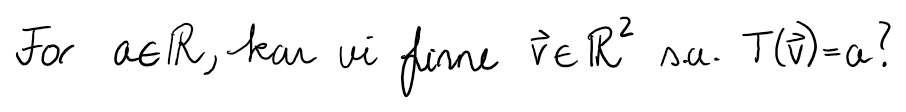 For a∈ℝ, kan vi finne v⃗∈ℝ² s.a. T(v⃗)=a?